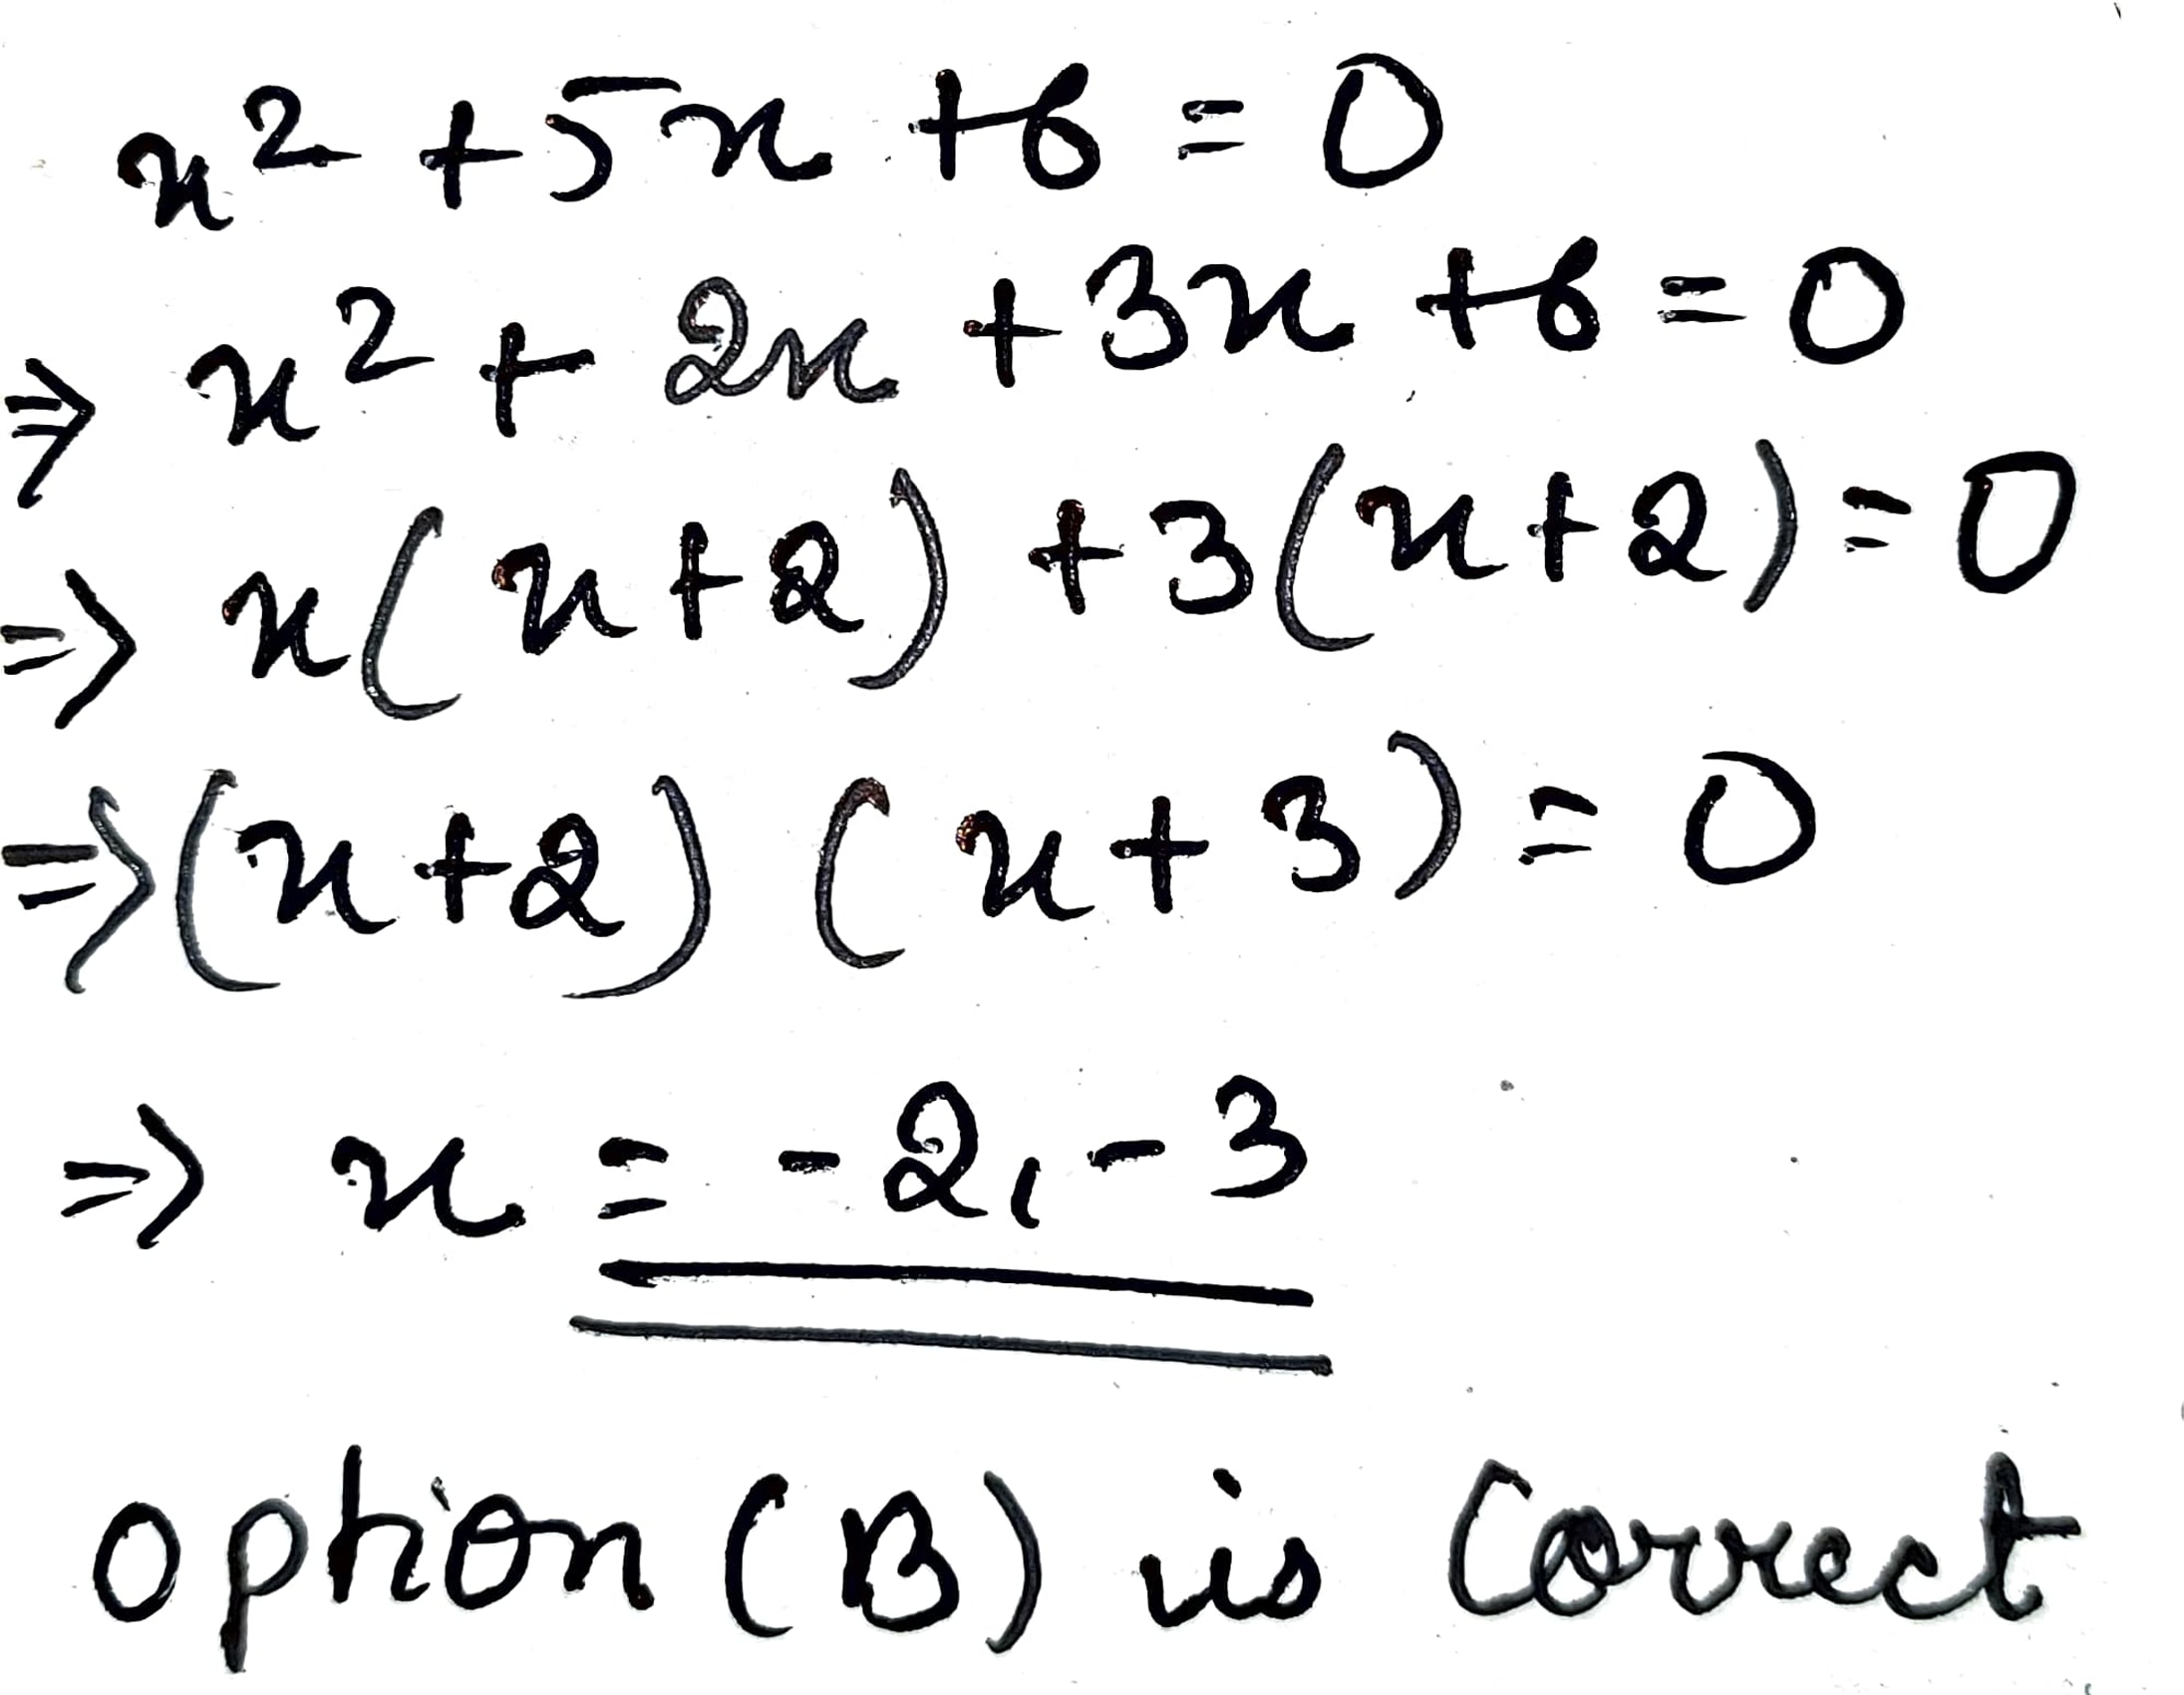 x² + 5x + 6 = 0
⇒ x² + 2x + 3x + 6 = 0
⇒ x(x+2) + 3(x+2) = 0
⇒ (x+2) (x+3) = 0
⇒ x = -2, -3
option (B) is correct